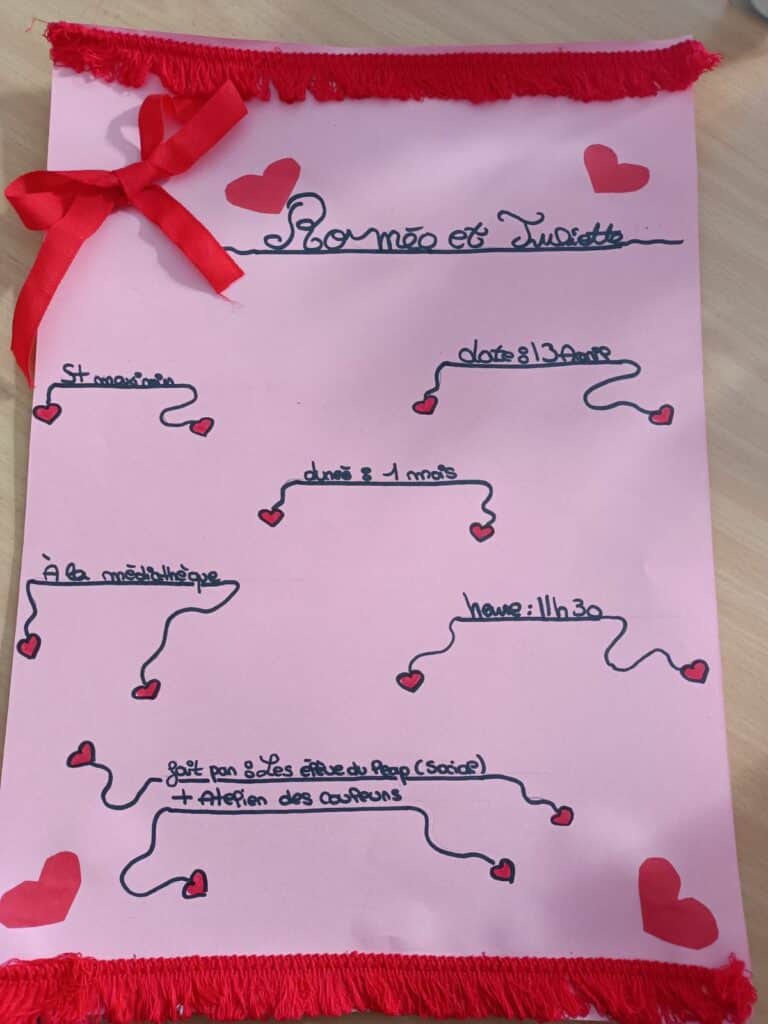 Roméo et Juliette
St maximin
date : 13 Avril
durée : 1 mois
À la médiathèque
heure : 11h30
fait par : Les élève du Peap (Social)
+ Atelier des couleurs